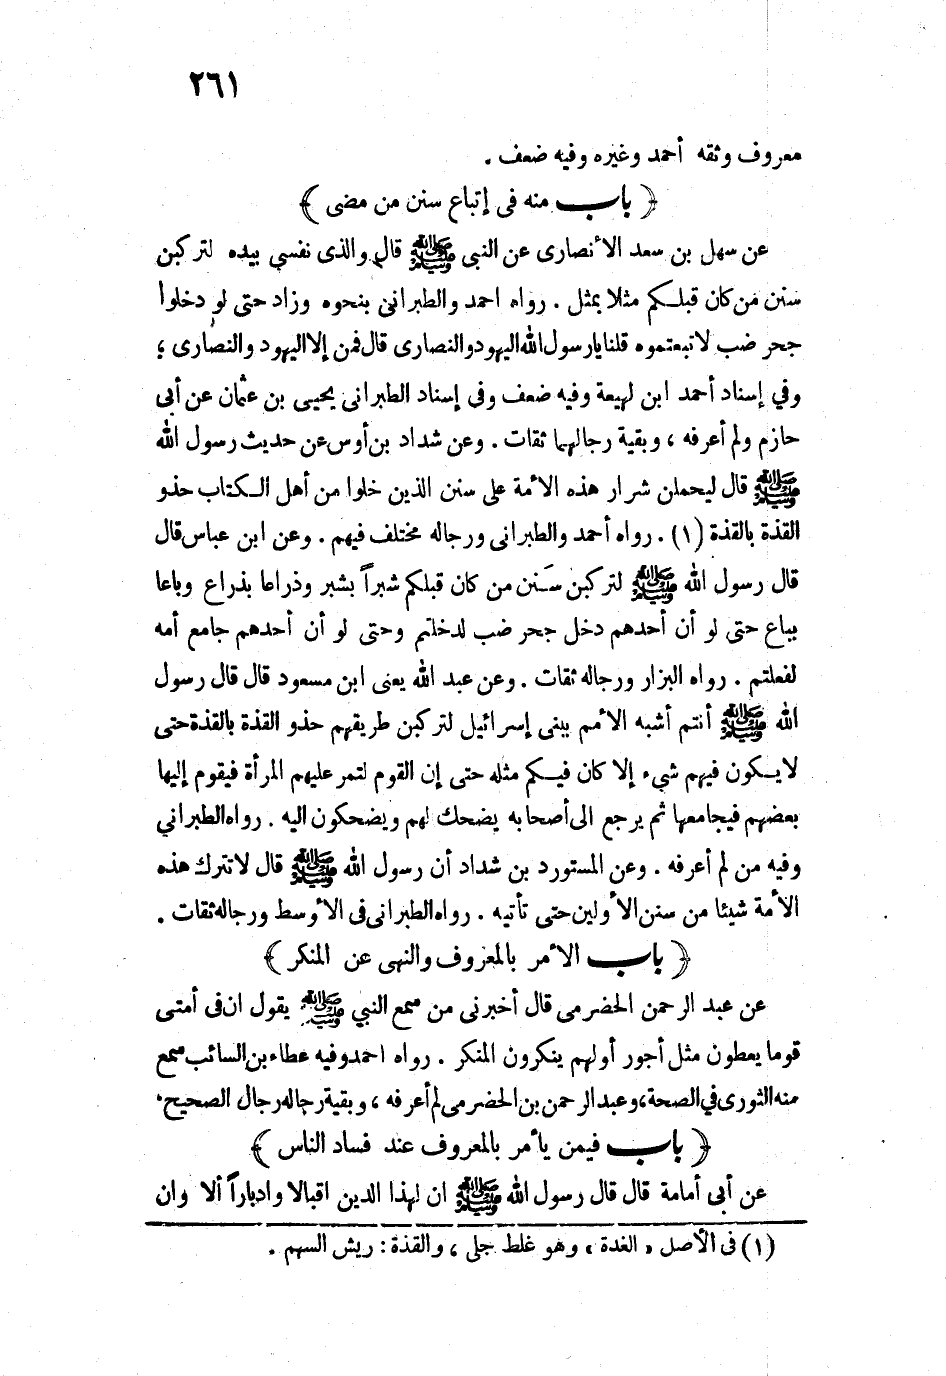 ٢٦١
معروف وثقه أحمد وغيره وفيه ضعف .
﴿ باب منه فى إتباع سنن من مضى ﴾
عن سهل بن سعد الأنصارى عن النبى ﷺ قال والذى نفسي بيده لتركبن
سنن من كان قبلكم مثلا بمثل . رواه احمد والطبرانى بنحوه وزاد حتى لو دخلوا
جحر ضب لاتبعتموه قلنا يا رسول الله اليهود والنصارى قال فمن إلا اليهود والنصارى ؛
وفي إسناد أحمد ابن لهيعة وفيه ضعف وفى إسناد الطبرانى يحيى بن عثمان عن أبى
حازم ولم أعرفه ، وبقية رجالهما ثقات . وعن شداد بن أوس عن حديث رسول الله
ﷺ قال ليحملن شرار هذه الأمة على سنن الذين خلوا من أهل الكتاب حذو
القذة بالقذة (١) . رواه أحمد والطبرانى ورجاله مختلف فيهم . وعن ابن عباس قال
قال رسول الله ﷺ لتركبن سَنن من كان قبلكم شبراً بشبر وذراعا بذراع وباعا
بباع حتى لو أن أحدهم دخل جحر ضب لدخلتم وحتى لو أن أحدهم جامع أمه
لفعلتم . رواه البزار ورجاله ثقات . وعن عبد الله يعنى ابن مسعود قال قال رسول
الله ﷺ أنتم أشبه الأمم ببنى إسرائيل لتركبن طريقهم حذو القذة بالقذة حتى
لا يكون فيهم شيء إلا كان فيكم مثله حتى إن القوم لتمر عليهم المرأة فيقوم إليها
بعضهم فيجامعها ثم يرجع الى أصحابه يضحك لهم ويضحكون اليه . رواه الطبراني
وفيه من لم أعرفه . وعن المستورد بن شداد أن رسول الله ﷺ قال لا تترك هذه
الأمة شيئا من سنن الأولين حتى تأتيه . رواه الطبرانى فى الأوسط ورجاله ثقات .
﴿ باب الأمر بالمعروف والنهى عن المنكر ﴾
عن عبد الرحمن الحضرمى قال أخبرنى من سمع النبي ﷺ يقول ان فى أمتى
قوما يعطون مثل أجور أولهم ينكرون المنكر . رواه احمد وفيه عطاء بن السائب سمع
منه الثورى في الصحة، وعبد الرحمن بن الحضرمى لم أعرفه ، وبقية رجاله رجال الصحيح .
﴿ باب فيمن يأمر بالمعروف عند فساد الناس ﴾
عن أبى أمامة قال قال رسول الله ﷺ ان لهذا الدين اقبالا وادباراً ألا وان
(١) فى الأصل « الغدة » وهو غلط جلى ، والقذة : ريش السهم .